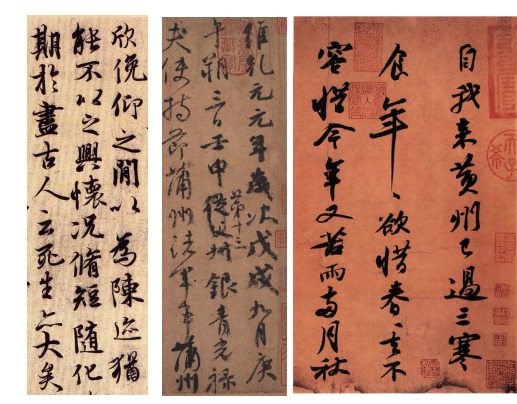 欣俛仰之閒以為陳迹猶
能不以之興懷况脩短隨化
期於盡古人云死生亦大矣
維乾元元年歲次戊戌九月庚
午朔三日壬申
第十三
從父
銀青光祿
夫使持節蒲州諸軍事蒲州
自我来黃州已過三寒
食年、欲惜春、去不
容惜今年又苦雨兩月秋